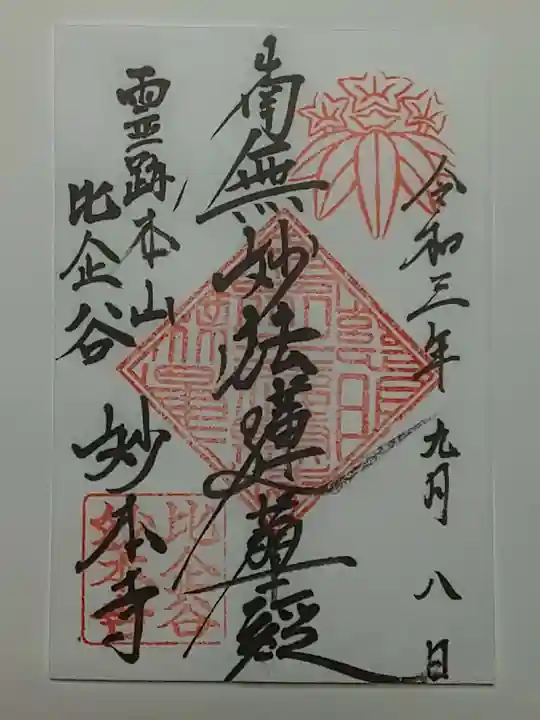 令和三年九月八日
南無妙法蓮華経
霊跡本山
比企谷
妙本寺
比企谷
妙本寺